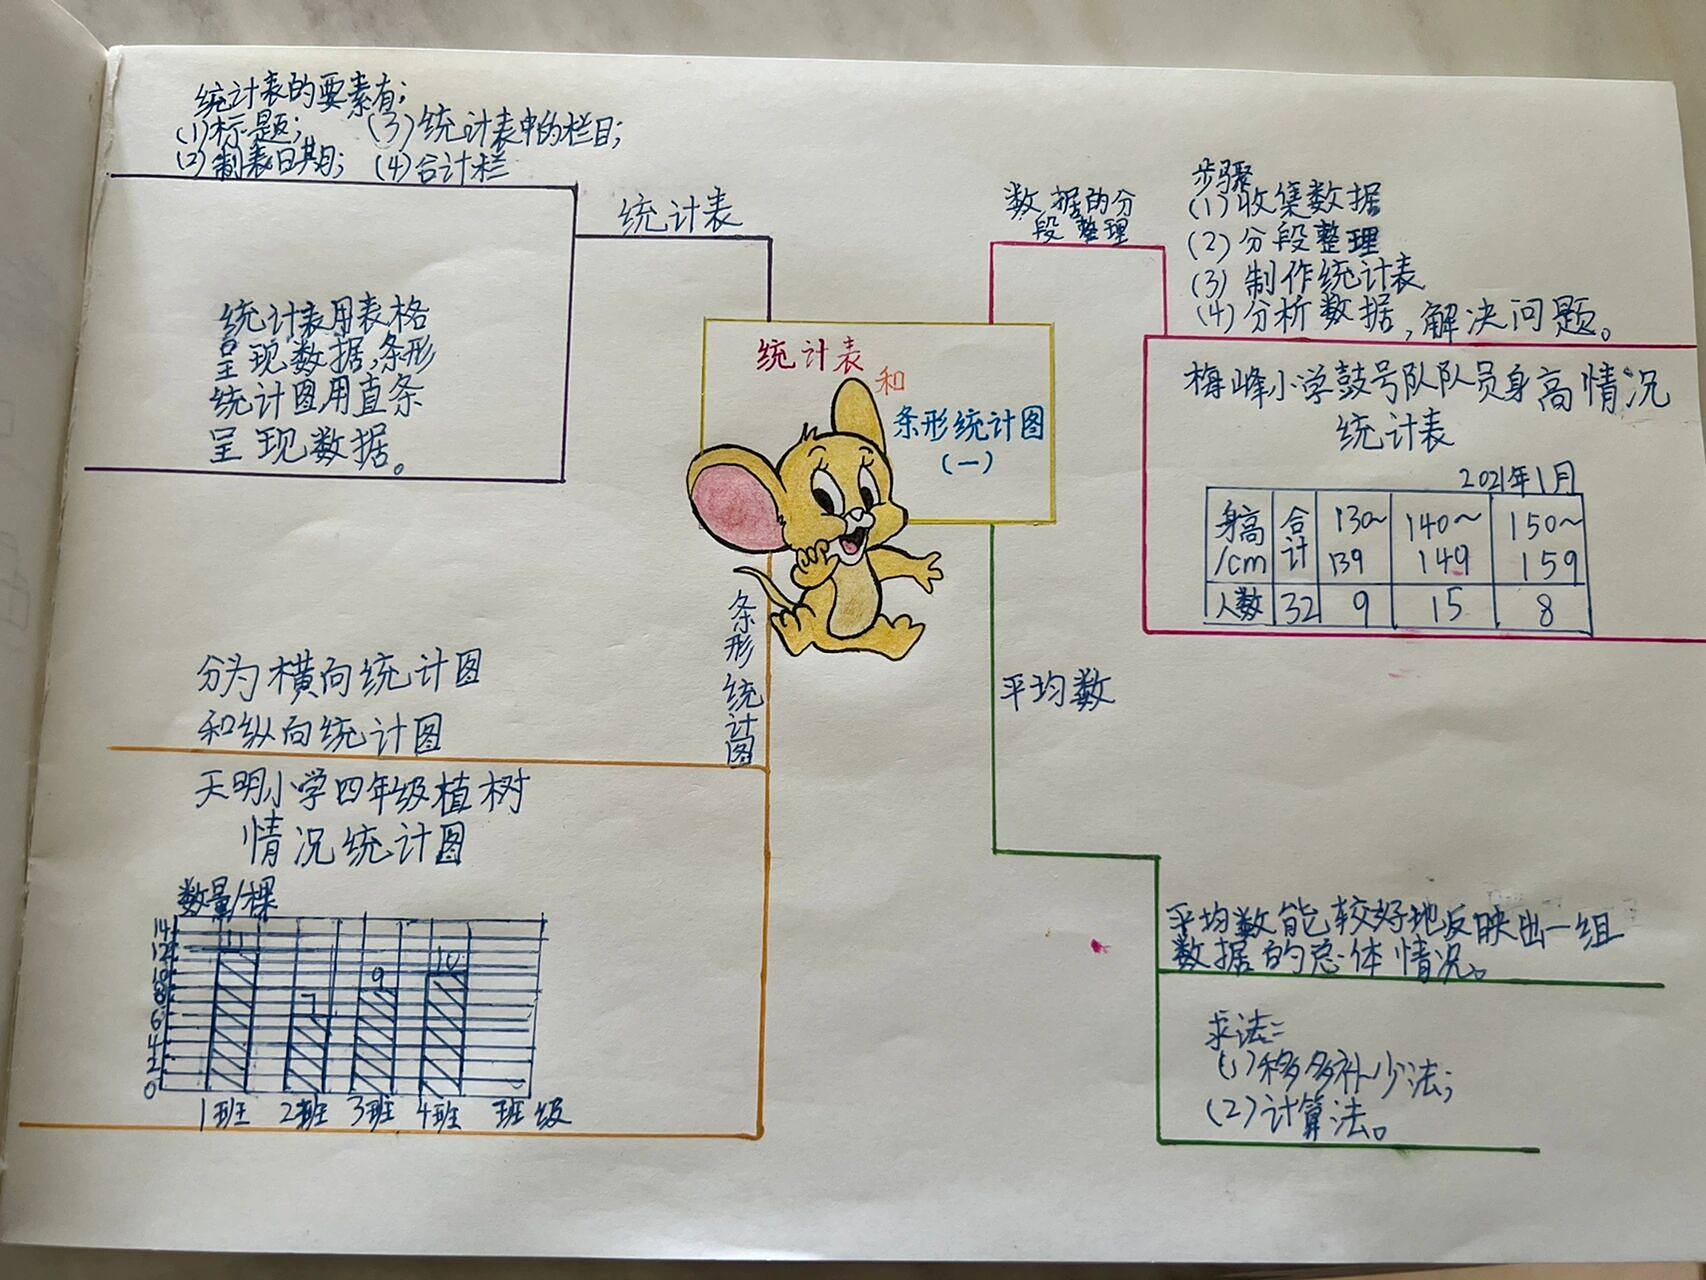 统计表的要素有:
(1)标题; (3)统计表中的栏目;
(2)制表日期; (4)合计栏
统计表
统计表用表格
呈现数据,条形
统计图用直条
呈现数据。
统计表
和
条形统计图
(一)
数据的分
段整理
步骤
(1)收集数据
(2)分段整理
(3)制作统计表
(4)分析数据,解决问题。
梅峰小学鼓号队队员身高情况
统计表
2021年1月
身高/cm 合计 130~139 140~149 150~159
人数 32 9 15 8
条形统计图
分为横向统计图
和纵向统计图
天明小学四年级植树
情况统计图
数量/棵
14
12
10
8
6
4
2
0
11
7
9
10
1班 2班 3班 4班 班级
平均数
平均数能较好地反映出一组
数据的总体情况。
求法:
(1)移多补少法;
(2)计算法。